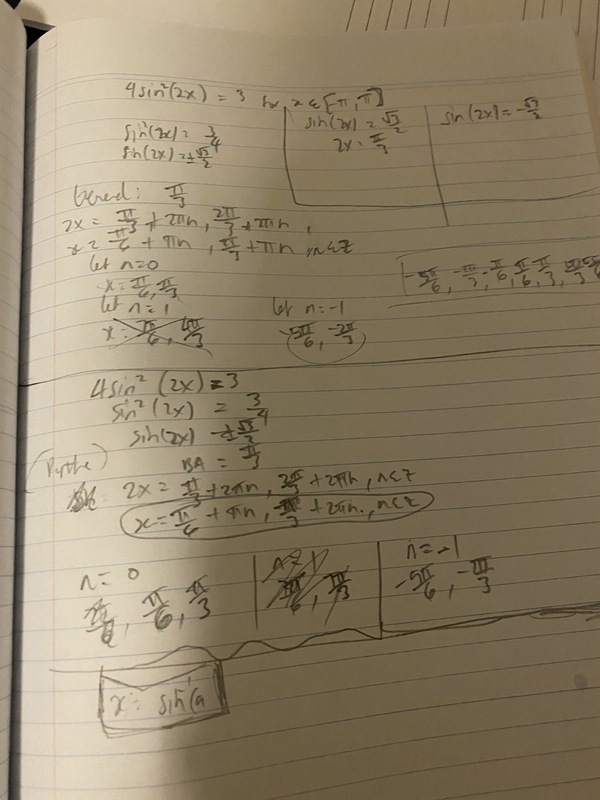 4sin²(2x) = 3 for x ∈ [-π, π]
sin²(2x) = 3/4
sin(2x) = ±√3/2
sin(2x) = √3/2
2x = π/3
sin(2x) = -√3/2
General: π/3
2x = π/3 + 2πn, 2π/3 + 2πn,
x = π/6 + πn, π/3 + πn, n∈Z
let n=0
x = π/6, π/3
let n=1
x = 7π/6, 4π/3
let n=-1
-5π/6, -2π/3
-5π/6, -π/3, -π/6, π/6, π/3,
4sin²(2x) = 3
sin²(2x) = 3/4
sin(2x) ±√3/2
BA = π/3
2x = π/3 + 2πn, 2π/3 + 2πn, n∈Z
x = π/6 + πn, π/3 + 2πn, n∈Z
n = 0
π/6, π/3
n = 1
n = -1
-5π/6, -2π/3
x = sin⁻¹(a